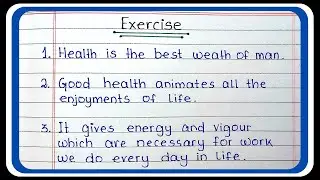 Exercise
1. Health is the best weath of man.
2. Good health animates all the
enjoyments of life.
3. It gives energy and vigour
which are necessary for work
we do every day in life.